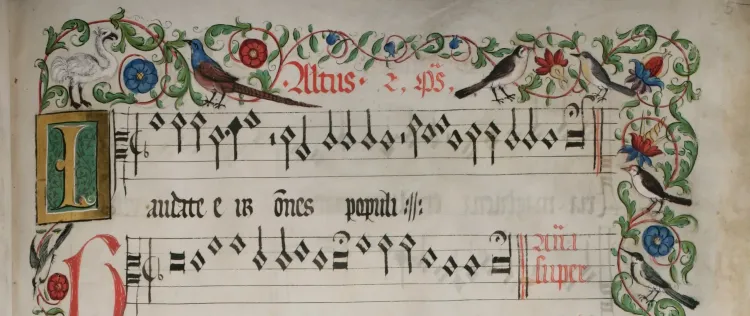 Altus · 2. p̄s.
Laudate e uȝ ōnes populi :||:
super